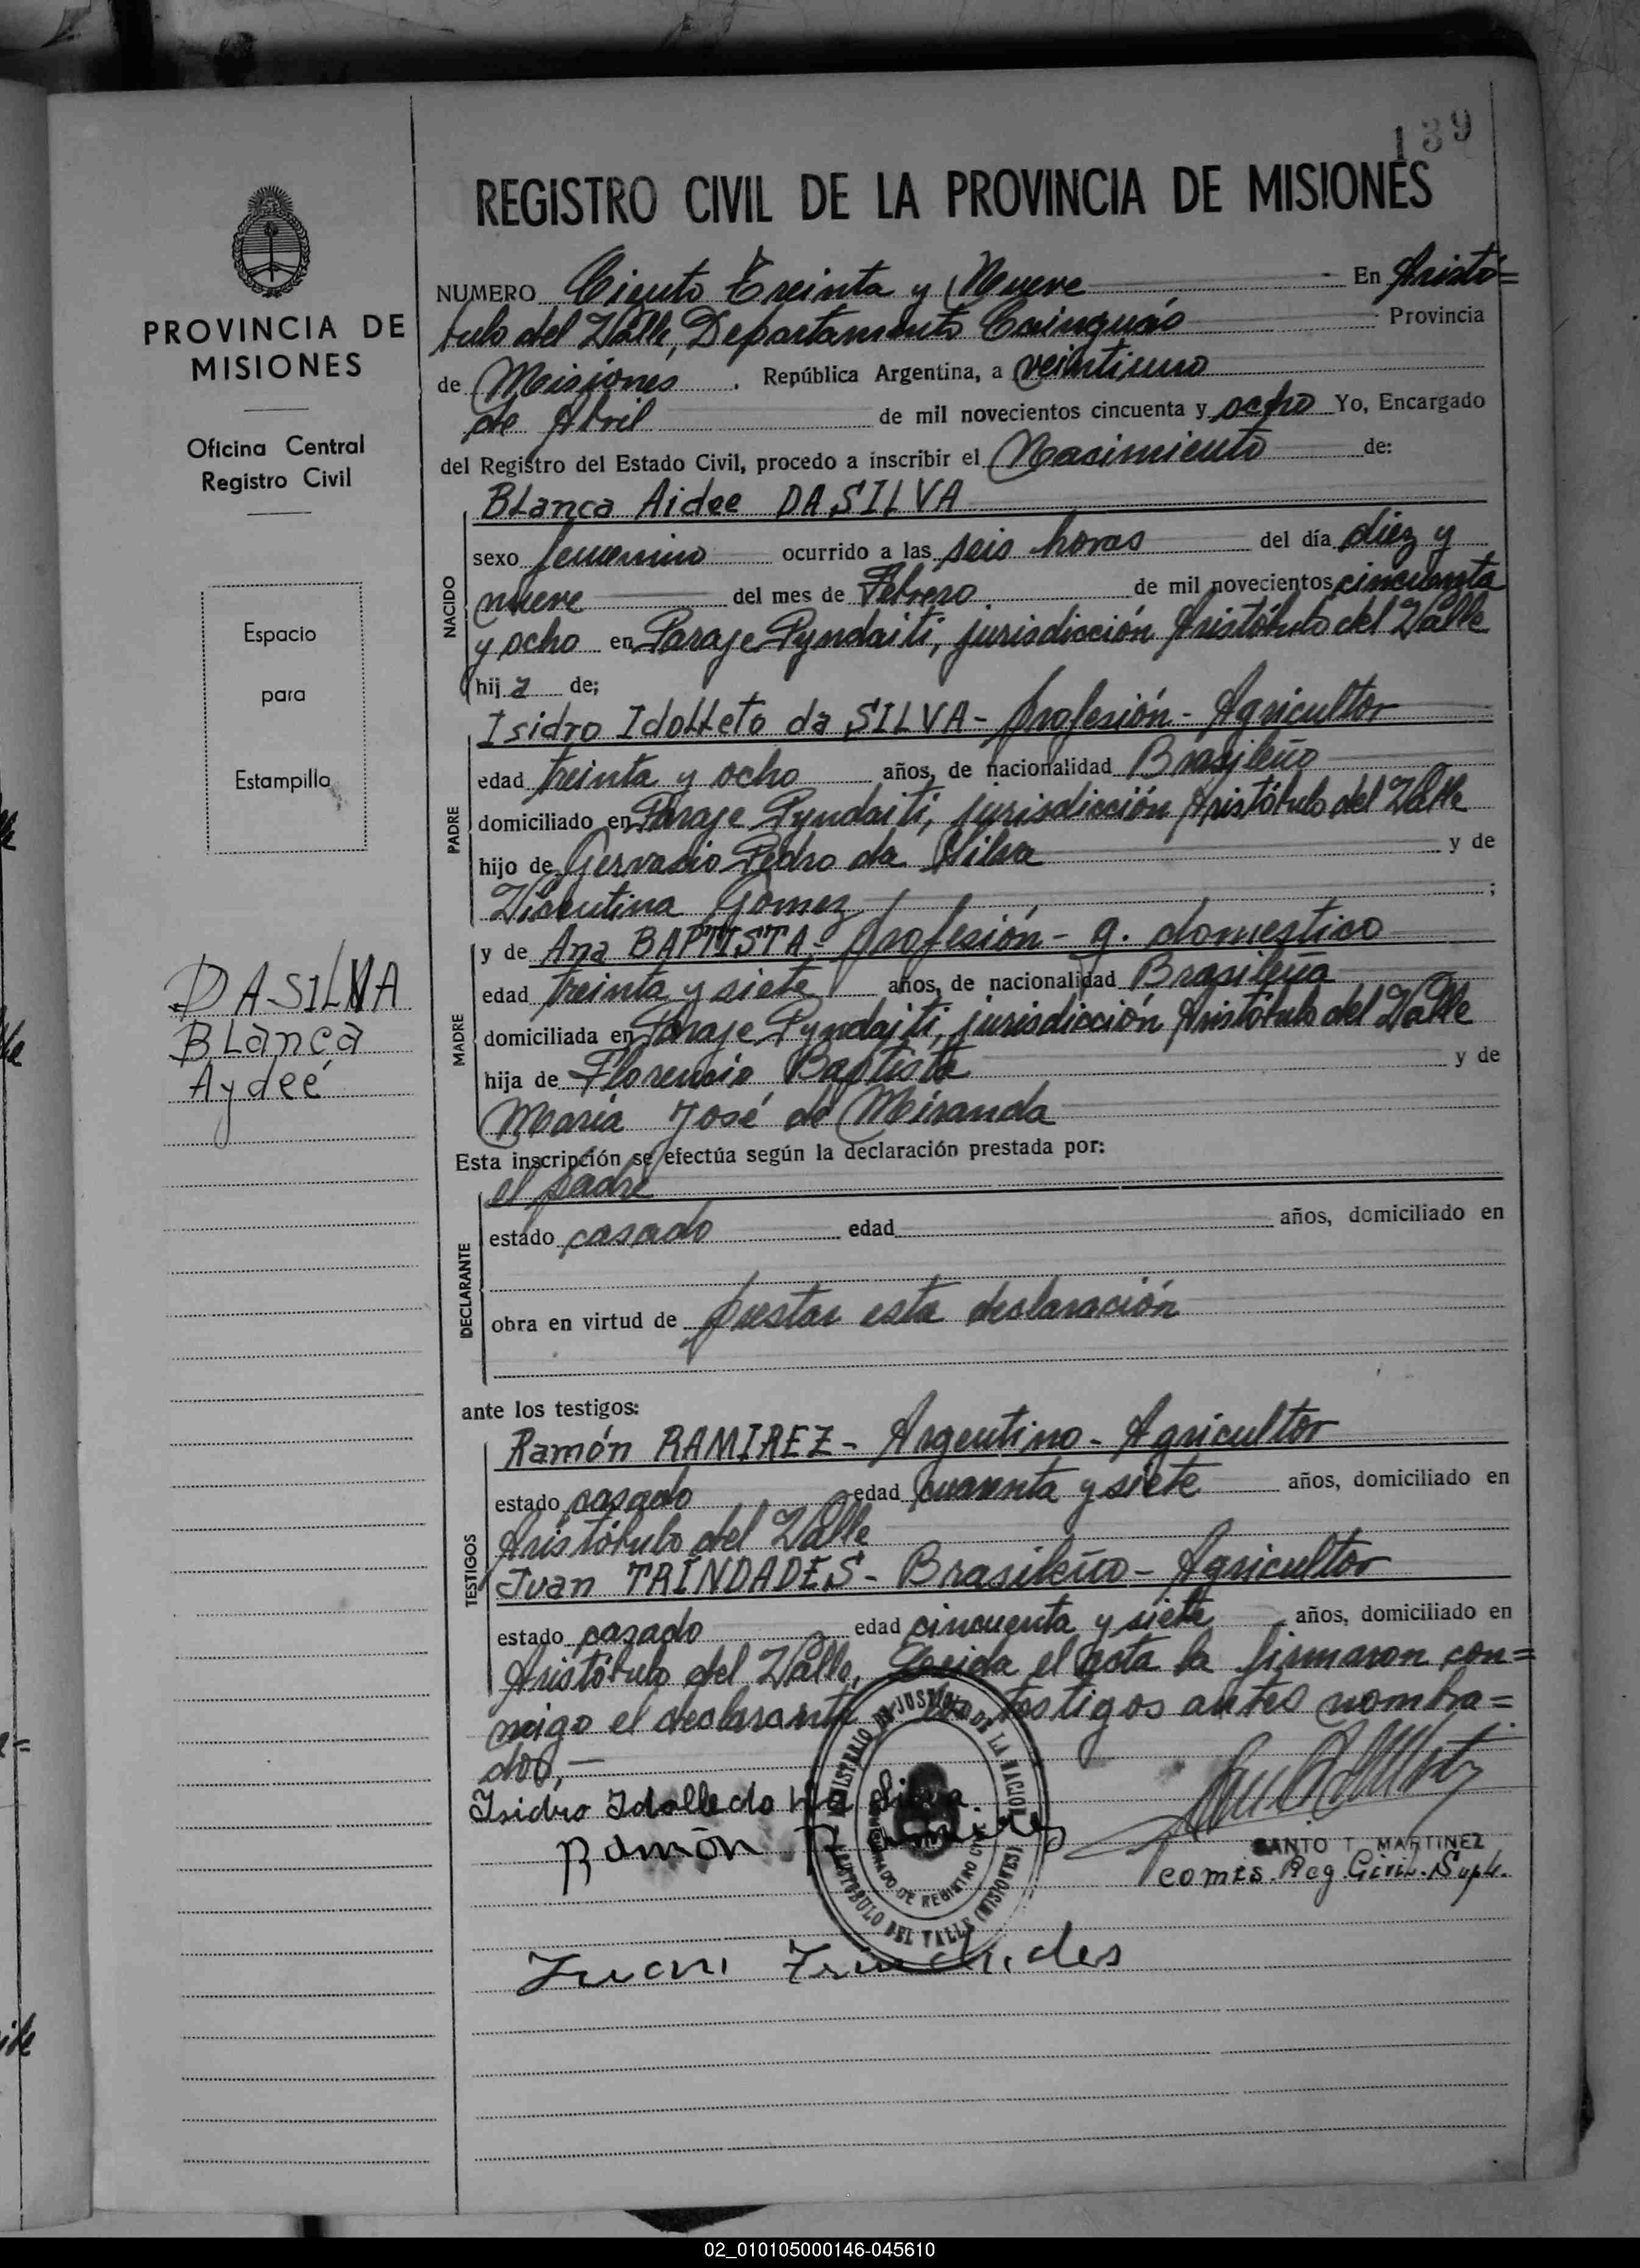 139
REGISTRO CIVIL DE LA PROVINCIA DE MISIONES
PROVINCIA DE
MISIONES
Oficina Central
Registro Civil
Espacio
para
Estampilla
DASILVA
BLanca
Aydeé
NUMERO Ciento Treinta y Nueve En Aristó=
bulo del Valle, Departamento Cainguás Provincia
de Misiones . República Argentina, a veintiuno
de Abril de mil novecientos cincuenta y ocho Yo, Encargado
del Registro del Estado Civil, procedo a inscribir el Nacimiento de:
NACIDO
BLanca Aidee DA SILVA
sexo femenino ocurrido a las seis horas del día diez y
nueve del mes de Febrero de mil novecientos cincuenta
y ocho en Paraje Pyndaiti, jurisdicción Aristóbulo del Valle
hija de;
PADRE
Isidro Idolleto da SILVA - profesión - Agricultor
edad treinta y ocho años, de nacionalidad Brasileño
domiciliado en Paraje Pyndaiti, jurisdicción Aristóbulo del Valle
hijo de Gervasio Pedro da Silva y de
Vicentina Gomez ;
MADRE
y de Ana BAPTISTA - profesión - q. domestico
edad treinta y siete años, de nacionalidad Brasileña
domiciliada en Paraje Pyndaiti, jurisdicción Aristóbulo del Valle
hija de Florencio Baptista y de
Maria José de Miranda
Esta inscripción se efectúa según la declaración prestada por:
DECLARANTE
el padre
estado casado edad años, domiciliado en
obra en virtud de prestar esta declaración
ante los testigos:
TESTIGOS
Ramón RAMIREZ - Argentino - Agricultor
estado casado edad cuarenta y siete años, domiciliado en
Aristóbulo del Valle
Juan TRINDADES - Brasileño - Agricultor
estado casado edad cincuenta y siete años, domiciliado en
Aristóbulo del Valle, Leida el acta la firmaron con=
migo el declarante testigos antes nombra=
dos,-
Isidro Idolledo da Silva
Ramón Ramires
MINISTERIO DE JUSTICIA DE LA NACION
ENCARGADO DE REGISTRO CIVIL
ARISTOBULO DEL VALLE (MISIONES)
SANTO T. MARTINEZ
comis. Reg. Civil. Supl.
Juan Trindades
02_010105000146-045610